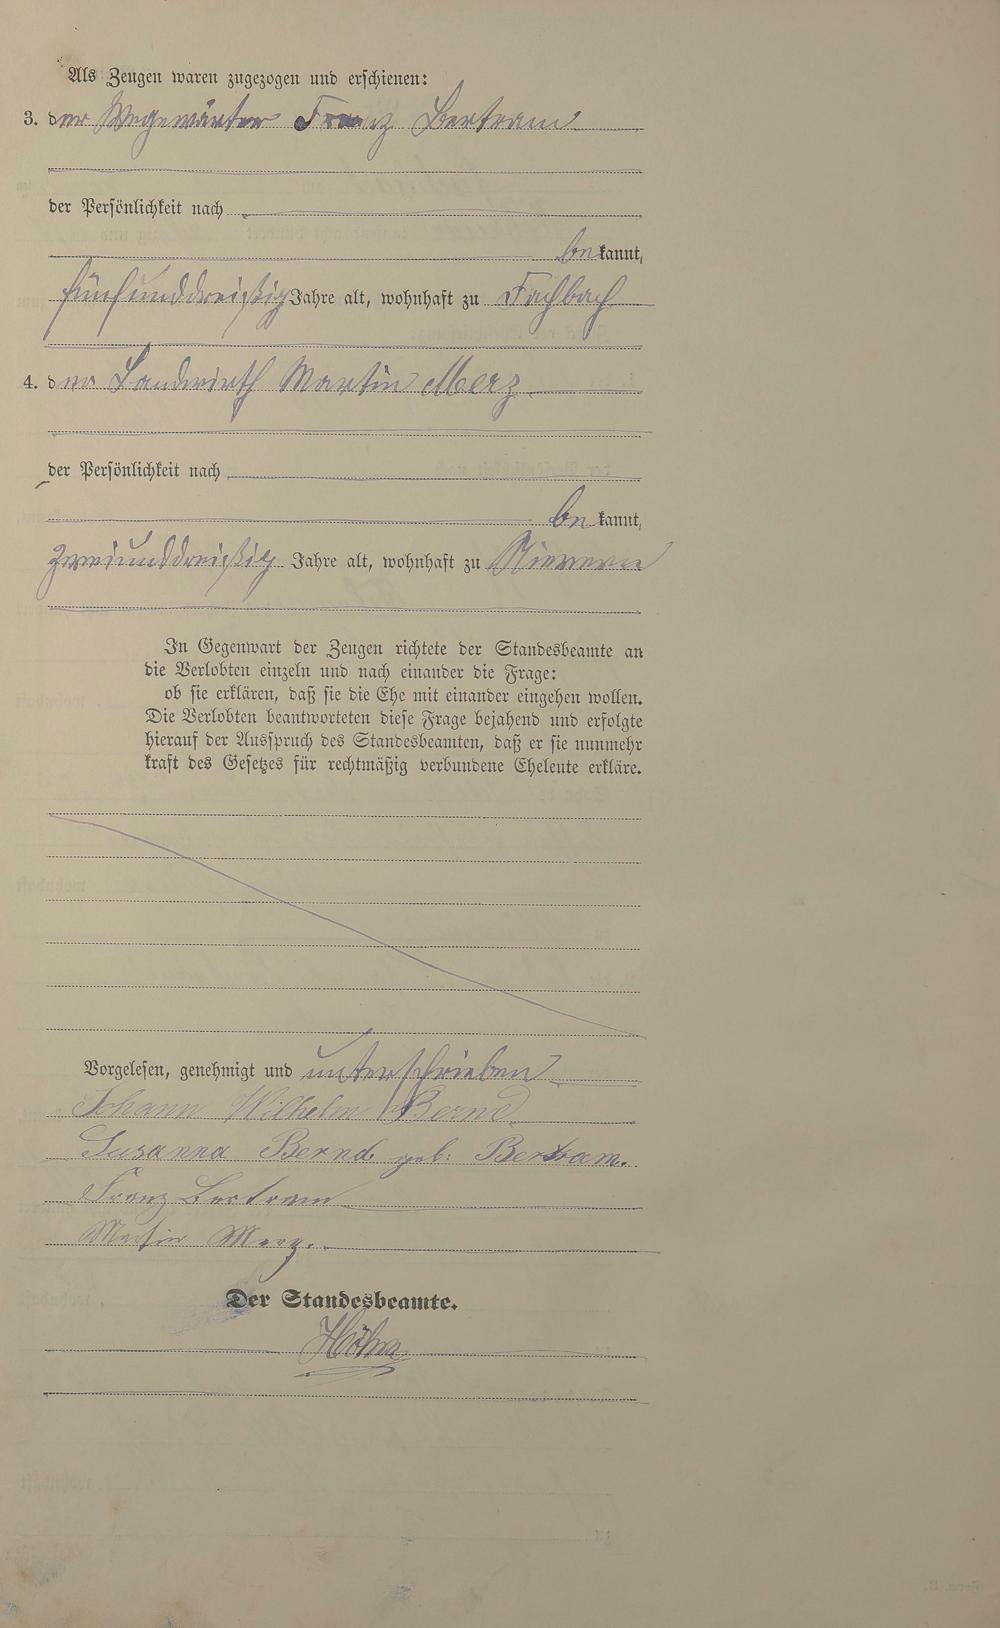 Als Zeugen waren zugezogen und erschienen:
3. der Wegewärter Franz Bertram
der Persönlichkeit nach
bekannt,
fünfunddreißig Jahre alt, wohnhaft zu Fachbach
4. der Landwirth Martin Merz
der Persönlichkeit nach
bekannt,
zweiunddreißig Jahre alt, wohnhaft zu Nievern
In Gegenwart der Zeugen richtete der Standesbeamte an
die Verlobten einzeln und nach einander die Frage:
ob sie erklären, daß sie die Ehe mit einander eingehen wollen.
Die Verlobten beantworteten diese Frage bejahend und erfolgte
hierauf der Ausspruch des Standesbeamten, daß er sie nunmehr
kraft des Gesetzes für rechtmäßig verbundene Eheleute erkläre.
Vorgelesen, genehmigt und unterschrieben
Johann Wilhelm Bernd
Susanna Bernd geb: Bertram.
Franz Bertram
Martin Merz.
Der Standesbeamte.
Höhn